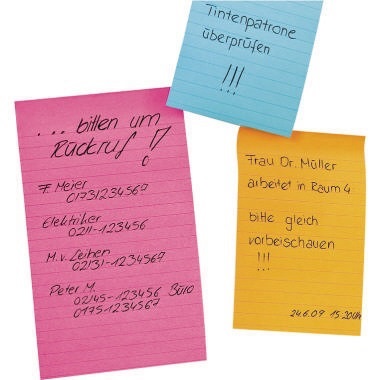 Tintenpatrone
überprüfen
!!!
... bitten um
Rückruf !
F. Meier
01731234567
Elektriker
0211-123456
M. v. Leihen
02131-1234567
Peter M.
02145-123456 Büro
0175-1234567
Frau Dr. Müller
arbeitet in Raum 4
bitte gleich
vorbeischauen
!!!
24.6.09 15:20Uhr